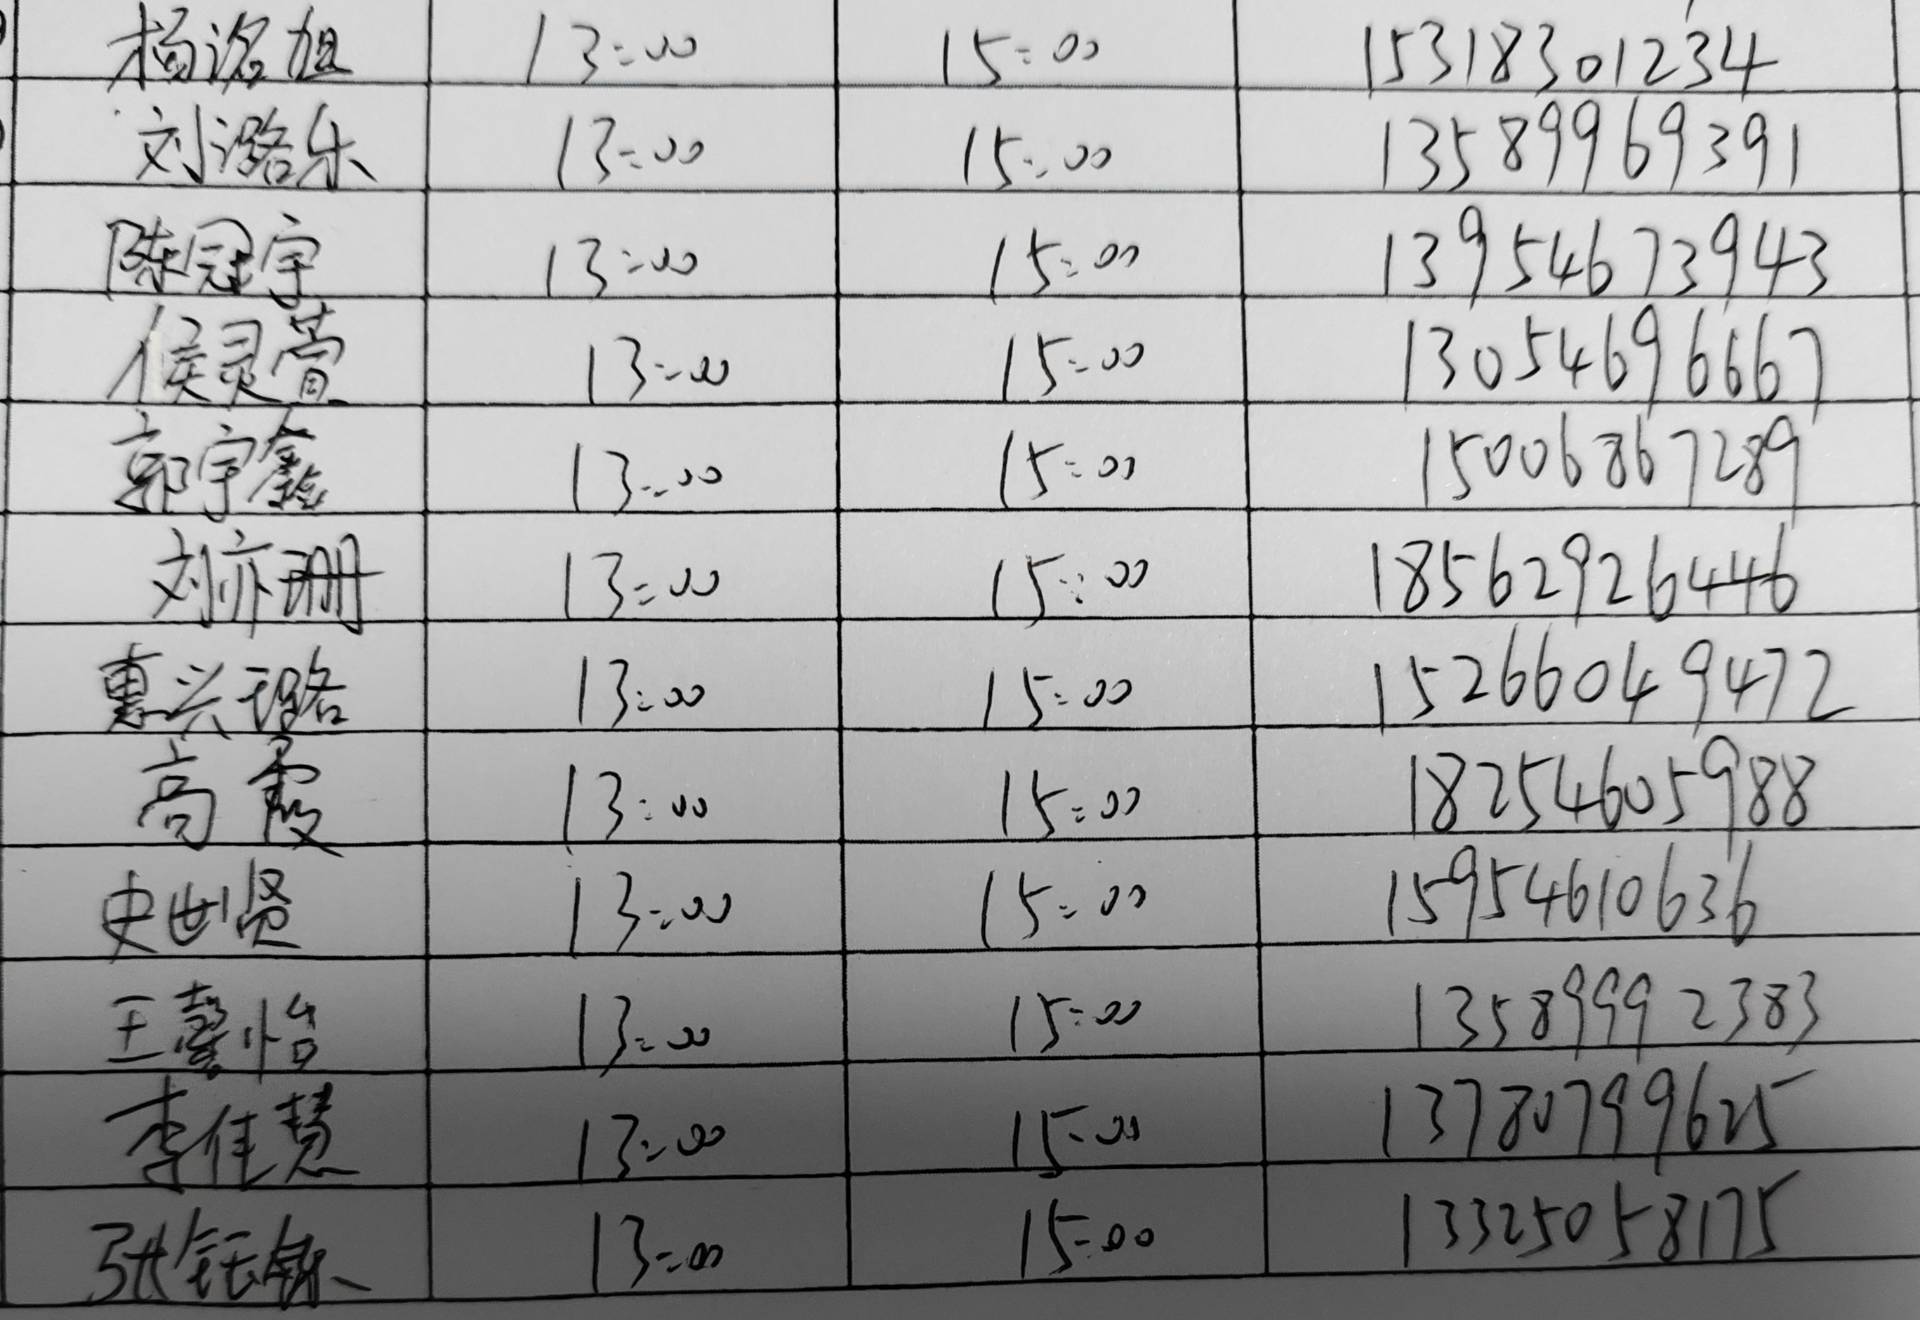 杨洺旭 13:00 15:00 15318301234
刘潞乐 13:00 15:00 13589969391
陈冠宇 13:00 15:00 13954673943
侯灵萱 13:00 15:00 13054696667
郭宇鑫 13:00 15:00 15006867289
刘亦珊 13:00 15:00 18562926446
惠兴璐 13:00 15:00 15266049472
高霞 13:00 15:00 18254605988
史世贤 13:00 15:00 15954610636
王馨怡 13:00 15:00 13589992383
李佳慧 13:00 15:00 13780799625
张钰 13:00 15:00 13325058175